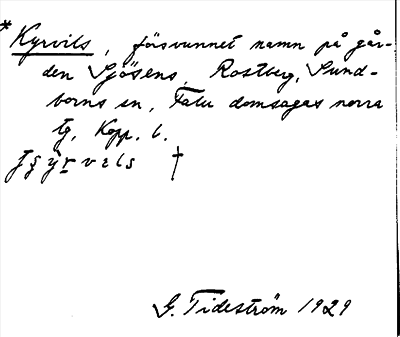 * Kyrvils, försvunnet namn på går-
den Sjösens, Rostberg, Sund-
borns sn, Falu domsagas norra
tg, Kopp. l.
†
G. Tideström 1929